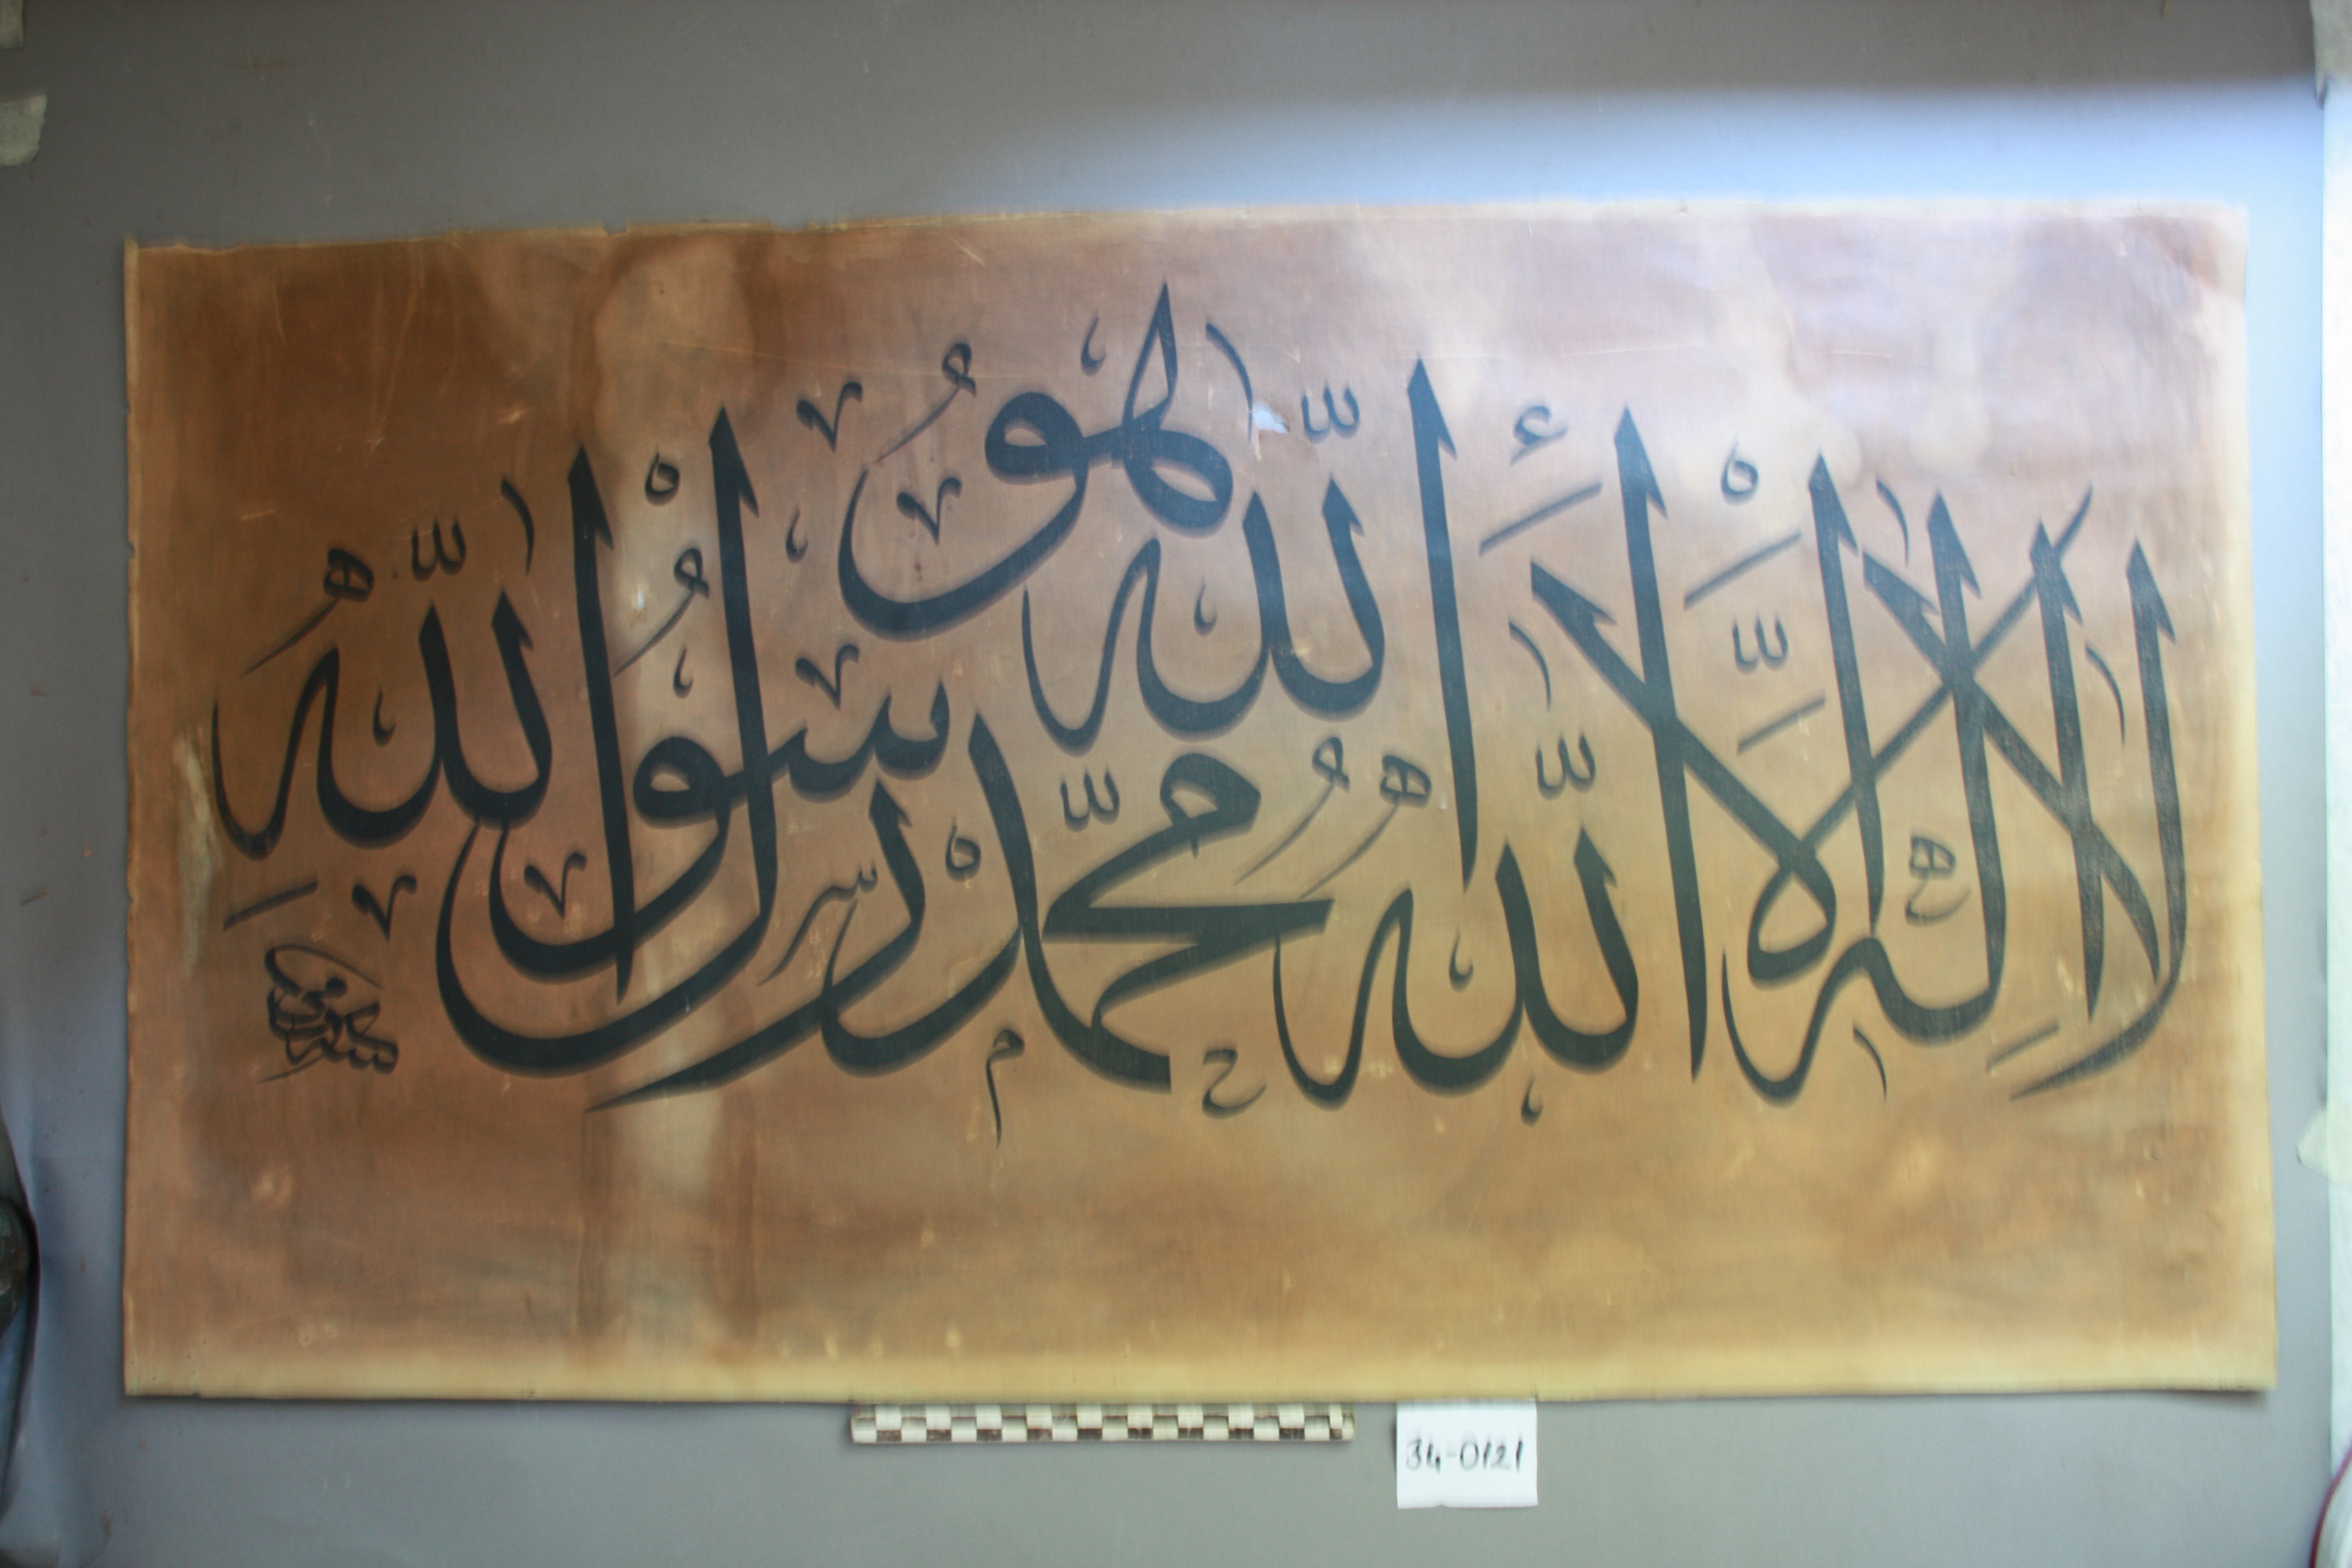 لا إله إلا الله الله هو محمد رسول الله
34-0121